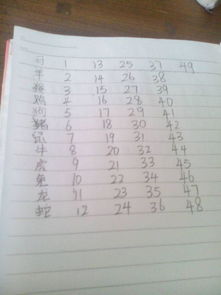 马 1 13 25 37 49
羊 2 14 26 38
猴 3 15 27 39
鸡 4 16 28 40
狗 5 17 29 41
猪 6 18 30 42
鼠 7 19 31 43
牛 8 20 32 44
虎 9 21 33 45
兔 10 22 34 46
龙 11 23 35 47
蛇 12 24 36 48